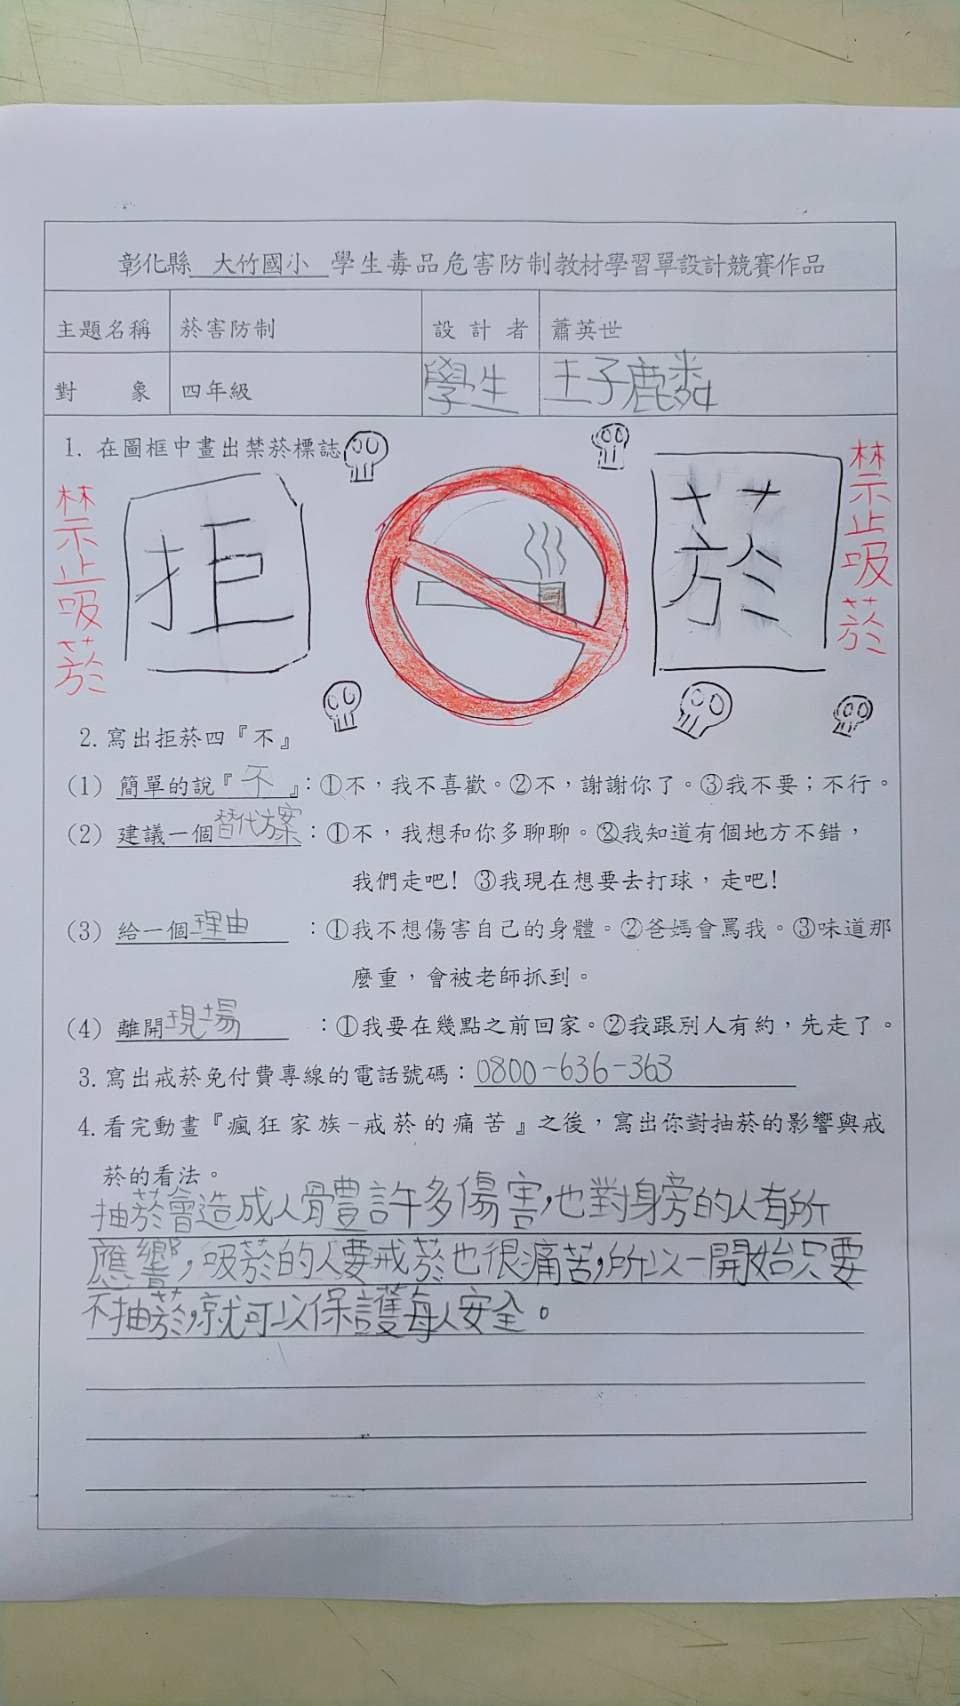 彰化縣 大竹國小 學生毒品危害防制教材學習單設計競賽作品
主題名稱 菸害防制 設計者 蕭英世
對象 四年級 學生 王子麟
1. 在圖框中畫出禁菸標誌
禁止吸菸
拒
菸
禁止吸菸
2.寫出拒菸四『不』
(1) 簡單的說『不』:①不,我不喜歡。②不,謝謝你了。③我不要;不行。
(2) 建議一個替代方案:①不,我想和你多聊聊。②我知道有個地方不錯,
我們走吧! ③我現在想要去打球,走吧!
(3) 給一個理由:①我不想傷害自己的身體。②爸媽會罵我。③味道那
麼重,會被老師抓到。
(4) 離開現場:①我要在幾點之前回家。②我跟別人有約,先走了。
3.寫出戒菸免付費專線的電話號碼:0800-636-363
4.看完動畫『瘋狂家族-戒菸的痛苦』之後,寫出你對抽菸的影響與戒
菸的看法。
抽菸會造成人體許多傷害,也對身旁的人有所
應響,吸菸的人要戒菸也很痛苦,所以一開始只要
不抽菸,就可以保護每人安全。